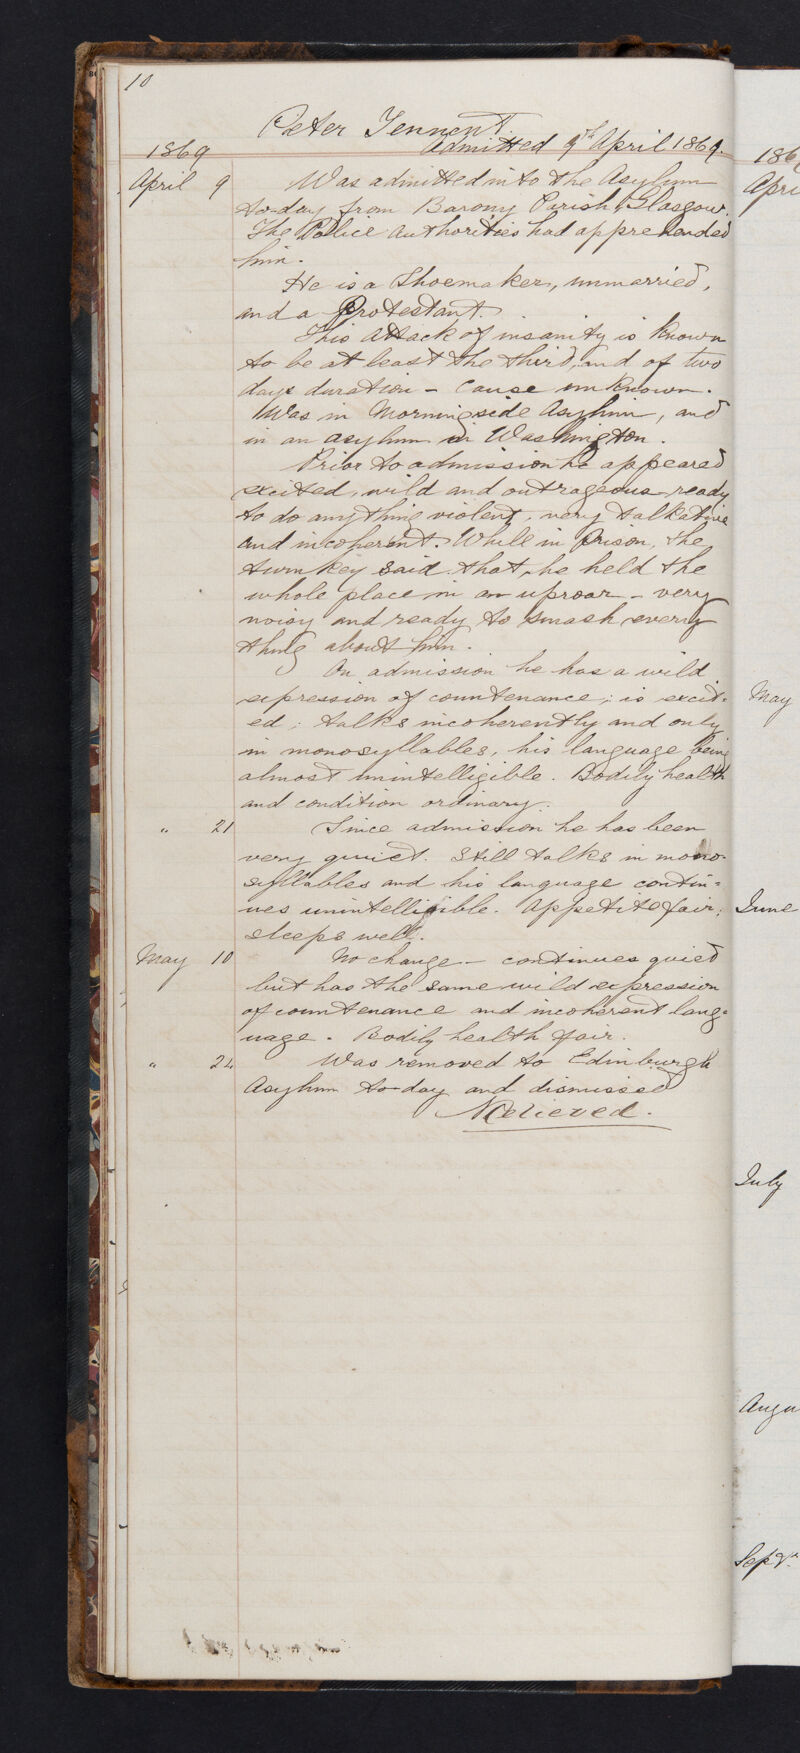 10
Peter Tennent.
Admitted 9th April 1869.
1869
April 9 Was admitted into the Asylum
to-day from Barony Parish Glasgow.
The Police Authorities had apprehended
him.
He is a Shoemaker, unmarried,
and a Protestant.
This attack of insanity is known
to be at least the third, and of two
days duration - Cause unknown.
Was in Morningside Asylum, and
in an asylum in Washington.
Prior to admission he appeared
excited, wild and outrageous ready
to do anything violent, very talkative
and incoherent. While in prison, the
turnkey said that he held the
whole place in an uproar - very
noisy and ready to smash every
thing about him.
On admission he has a wild
expression of countenance; is excit-
ed; talks incoherently and only
in monosyllables, his language being
almost unintelligible. Bodily health
and condition ordinary.
" 21 Since admission he has been
very quiet. Still talks in mono-
syllables and his language contin=
ues unintelligible. Appetite fair;
sleeps well.
May 10 No change - continues quiet
but has the same wild expression
of countenance and incoherent lang=
uage. Bodily health fair.
" 24 Was removed to Edinburgh
Asylum to-day and dismissed
Relieved.
186
Apri
May
June
July
Augu
Sept.